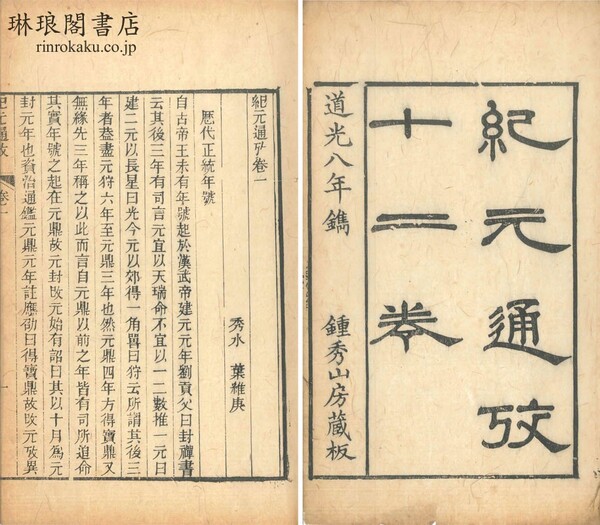 琳琅閣書店
rinrokaku.co.jp
紀元通攷
十二卷
道光八年鐫
鍾秀山房藏板
紀元通攷卷一
秀水 葉維庚
歷代正統年號
自古帝王未有年號起於漢武帝建元元年劉貢父曰封禪書
云其後三年有司言元宜以天瑞命不宜以一二數推一元曰
建二元以長星曰光今元以郊得一角獸曰狩云所謂其後三
年者葢盡元狩六年至元鼎三年也然元鼎四年方得寶鼎又
無緣先三年稱之以此而言自元鼎以前之年皆有司所追命
其實年號之起在元鼎故元封改元始有詔曰其以十月爲元
封元年也資治通鑑元鼎元年註應劭曰得寶鼎故改元攷異
紀元通攷 卷一 一